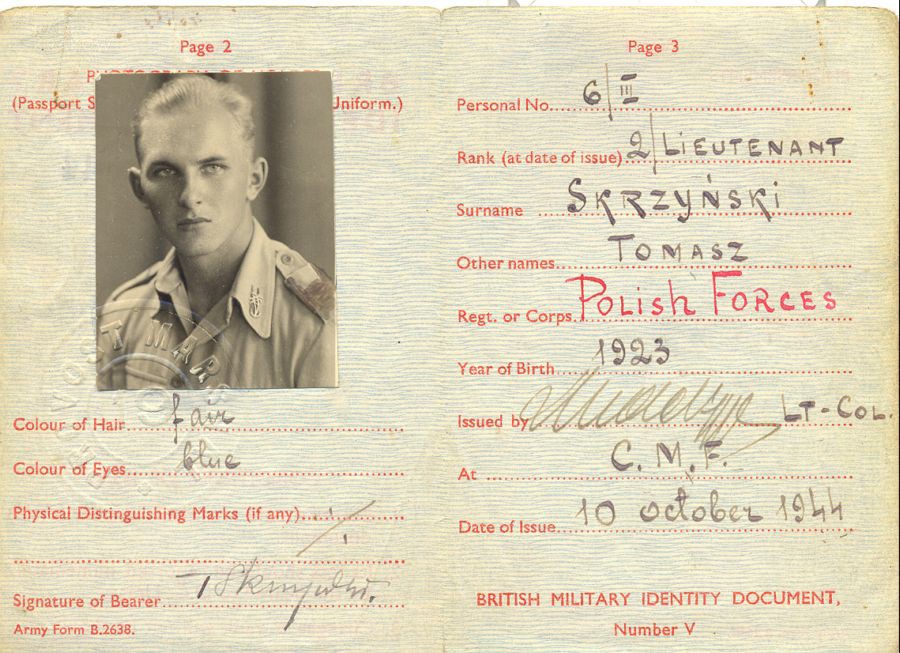 Page 2
(Passport S
Uniform.)
Colour of Hair fair
Colour of Eyes blue
Physical Distinguishing Marks (if any)
Signature of Bearer TSkrzyński.
Army Form B.2638.
Page 3
Personal No. 6/III
Rank (at date of issue) 2/LIEUTENANT
Surname SKRZYŃSKi
Other names TOMASZ
Regt. or Corps POLISH FORCES
Year of Birth 1923
Issued by LT-COL.
At C.M.F.
Date of Issue 10 october 1944
BRITISH MILITARY IDENTITY DOCUMENT,
Number V